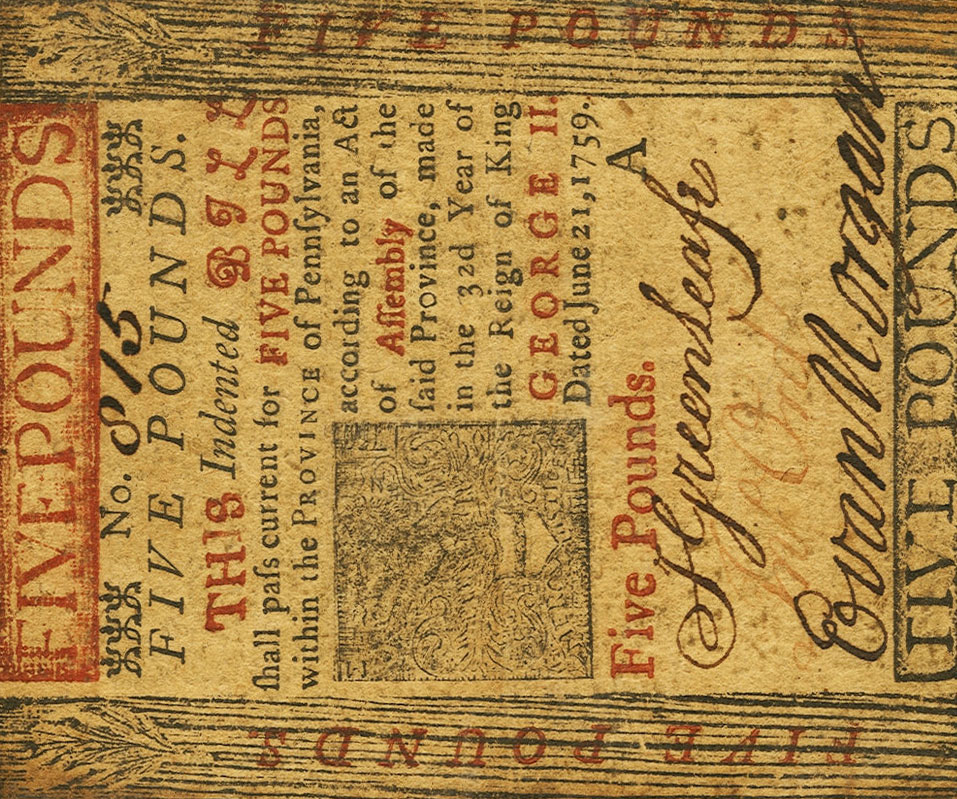 FIVE POUNDS
No. 815
FIVE POUNDS.
THIS Indented BILL
ſhall paſs current for FIVE POUNDS
within the PROVINCE of Pennſylvania,
according to an Act
of Aſſembly of the
ſaid Province, made
in the 32d Year of
the Reign of King
GEORGE II.
Dated June 21, 1759.
Five Pounds. A
Greenleafe
Evan Morgan
FIVE POUNDS
FIVE POUNDS
FIVE POUNDS